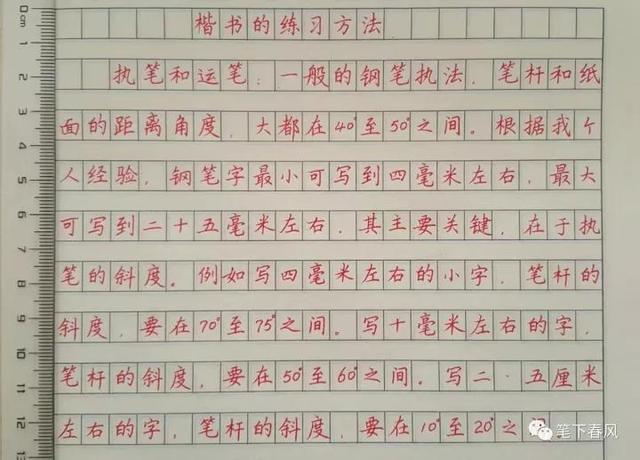 楷书的练习方法
执笔和运笔：一般的钢笔执法，笔杆和纸
面的距离角度，大都在40°至50°之间。根据我个
人经验，钢笔字最小可写到四毫米左右，最大
可写到二十五毫米左右，其主要关键，在于执
笔的斜度。例如写四毫米左右的小字，笔杆的
斜度，要在70°至75°之间。写十毫米左右的字，
笔杆的斜度，要在50°至60°之间。写二·五厘米
左右的字，笔杆的斜度，要在10°至20°之
笔下春风
0cm
1
2
3
4
5
6
7
8
9
10
11
12